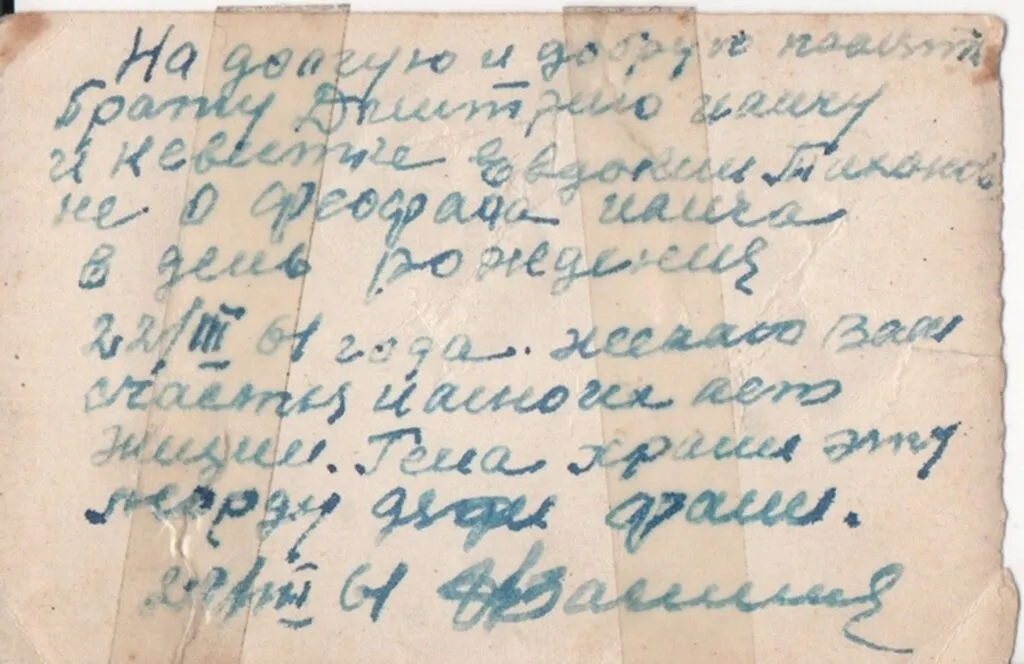 На долгую и добрую память
Брату Дмитрию
и невестке Евдокии Тихонов
не о
в день рождения
22/III 61 года. желаю Вам
счастья и многих лет
жизни. Гена храни эту
морду дяди
22/III 61